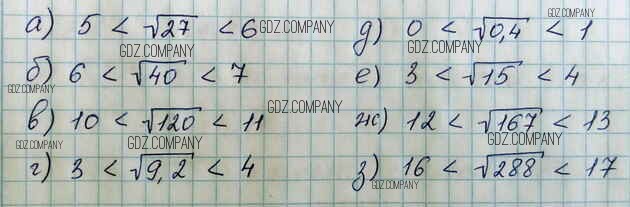 а) 5 < √27 < 6 GDZ.COMPANY
GDZ.COMPANY
б) 6 < √40 < 7
GDZ.COMPANY
в) 10 < √120 < 11 GDZ.COMPANY
GDZ.COMPANY
GDZ.COMPANY
г) 3 < √9,2 < 4
GDZ.COMPANY
д) 0 < √0,4 < 1
GDZ.COMPANY
е) 3 < √15 < 4
GDZ.COMPANY
ж) 12 < √167 < 13
GDZ.COMPANY
з) 16 < √288 < 17
GDZ.COMPANY